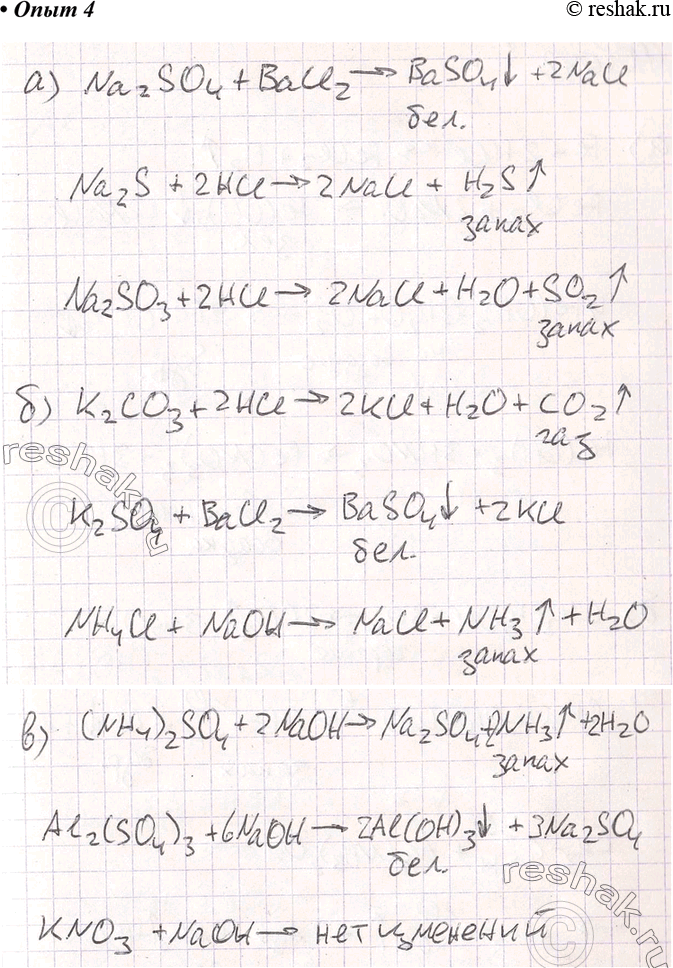 • Опыт 4
© reshak.ru
а) Na₂SO₄ + BaCl₂ → BaSO₄↓ + 2NaCl
бел.
Na₂S + 2HCl → 2NaCl + H₂S↑
запах
Na₂SO₃ + 2HCl → 2NaCl + H₂O + SO₂↑
запах
б) K₂CO₃ + 2HCl → 2KCl + H₂O + CO₂↑
газ
reshak.ru
©
K₂SO₄ + BaCl₂ → BaSO₄↓ + 2KCl
бел.
NH₄Cl + NaOH → NaCl + NH₃↑ + H₂O
запах
в) (NH₄)₂SO₄ + 2NaOH → Na₂SO₄ + 2NH₃↑ + 2H₂O
запах
Al₂(SO₄)₃ + 6NaOH → 2Al(OH)₃↓ + 3Na₂SO₄
бел.
KNO₃ + NaOH → нет изменений
reshak.ru
©